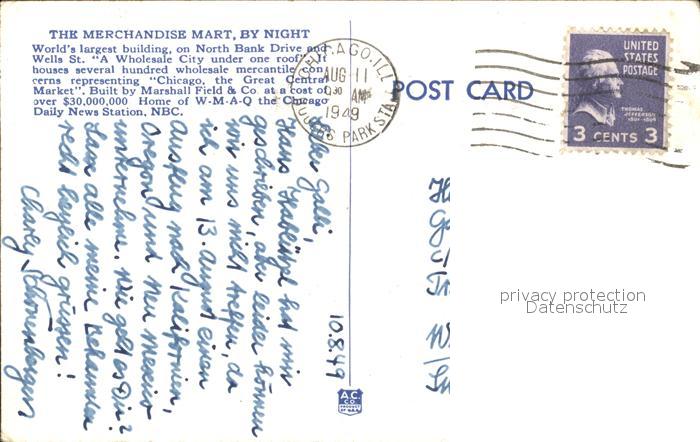 THE MERCHANDISE MART, BY NIGHT
World's largest building, on North Bank Drive and
Wells St. "A Wholesale City under one roof". It
houses several hundred wholesale mercantile con-
cerns representing "Chicago, the Great Central
Market". Built by Marshall Field & Co. at a cost of
over $30,000,000 Home of W-M-A-Q the Chicago
Daily News Station, NBC.
CHICAGO, ILL.
AUG 11
930 AM
1949
ROGERS PARK STA.
POST CARD
UNITED
STATES
POSTAGE
THOMAS
JEFFERSON
1801-1809
3 CENTS 3
10.8.49
Lieber Galli,
Hans hat mir
geschrieben, aber leider können
wir uns nicht treffen, da
ich am 13. August einen
Ausflug nach Kalifornien,
Oregon und New Mexico
unternehme. Wie geht es Dir?
Lass alle meine Bekannten
recht herzlich grüssen!
Charley Schönenberger
A.C.
CO.
PRODUCT
OF U.S.A.
privacy protection
Datenschutz